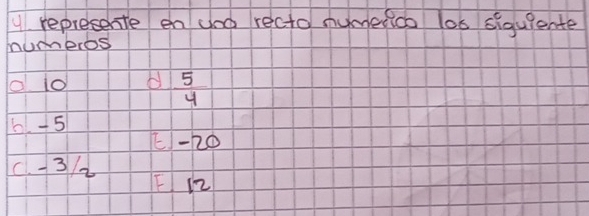 4. represente en una recta numerica los siguiente
numeros
a. 10
d 5/4
b. -5
E. -20
C. -3/2
F 12